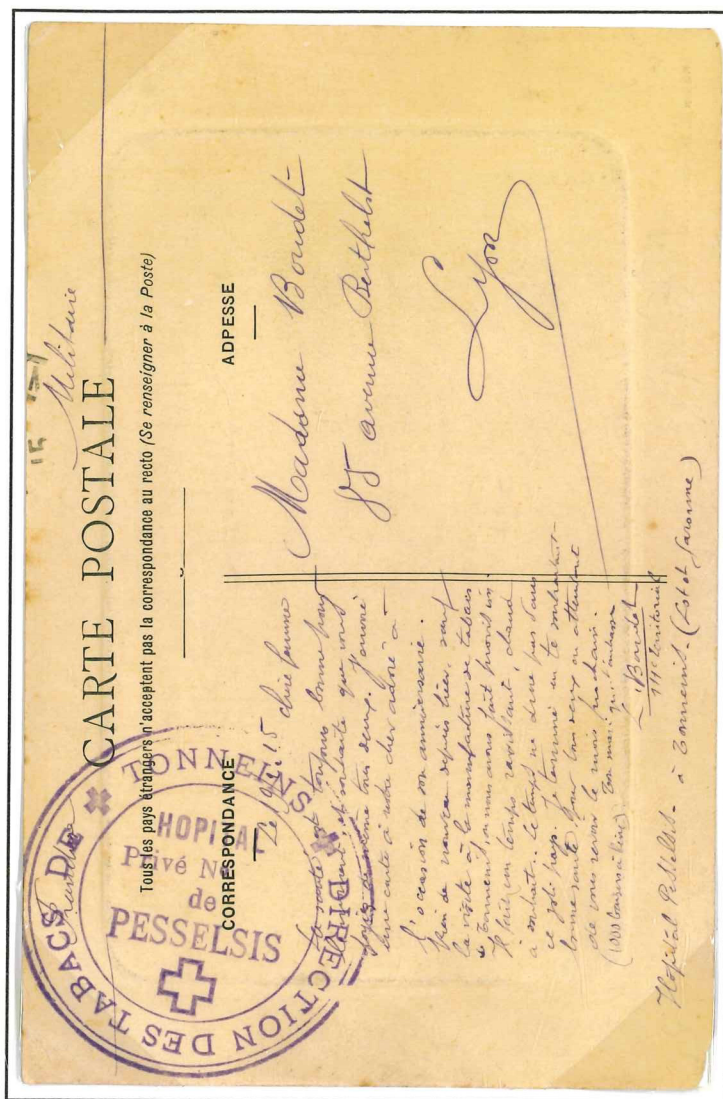 15
Franchise Militaire
CARTE POSTALE
Tous les pays étrangers n'acceptent pas la correspondance au recto (Se renseigner à la Poste)
CORRESPONDANCE
ADPESSE
DIRECTION DES TABACS DE TONNEINS
HOPITAL
Privé
de
PESSELSIS
Le 15 chère femme
la santé est toujours bonne pour
souhaite que vous
soyez de même tous deux. J'envoie
une carte à notre cher André à
l'occasion de son anniversaire.
Rien de nouveau depuis hier, sauf
la visite à la manufacture de tabacs
de Tonneins, où nous avons fait provision.
Il fait un temps ravissant, chaud
à souhait. le temps ne dure pas dans
ce joli pays. Je termine en te souhaitant
bonne santé pour tous deux en attendant
de vous revoir le mois prochain.
(1000 baisers à Line) Ton mari qui t'embrasse
Boudet
111e territorial
Hopital Pesselsis - à Tonneins - (Lot et Garonne)
Madame Boudet
85 avenue Berthelot
Lyon